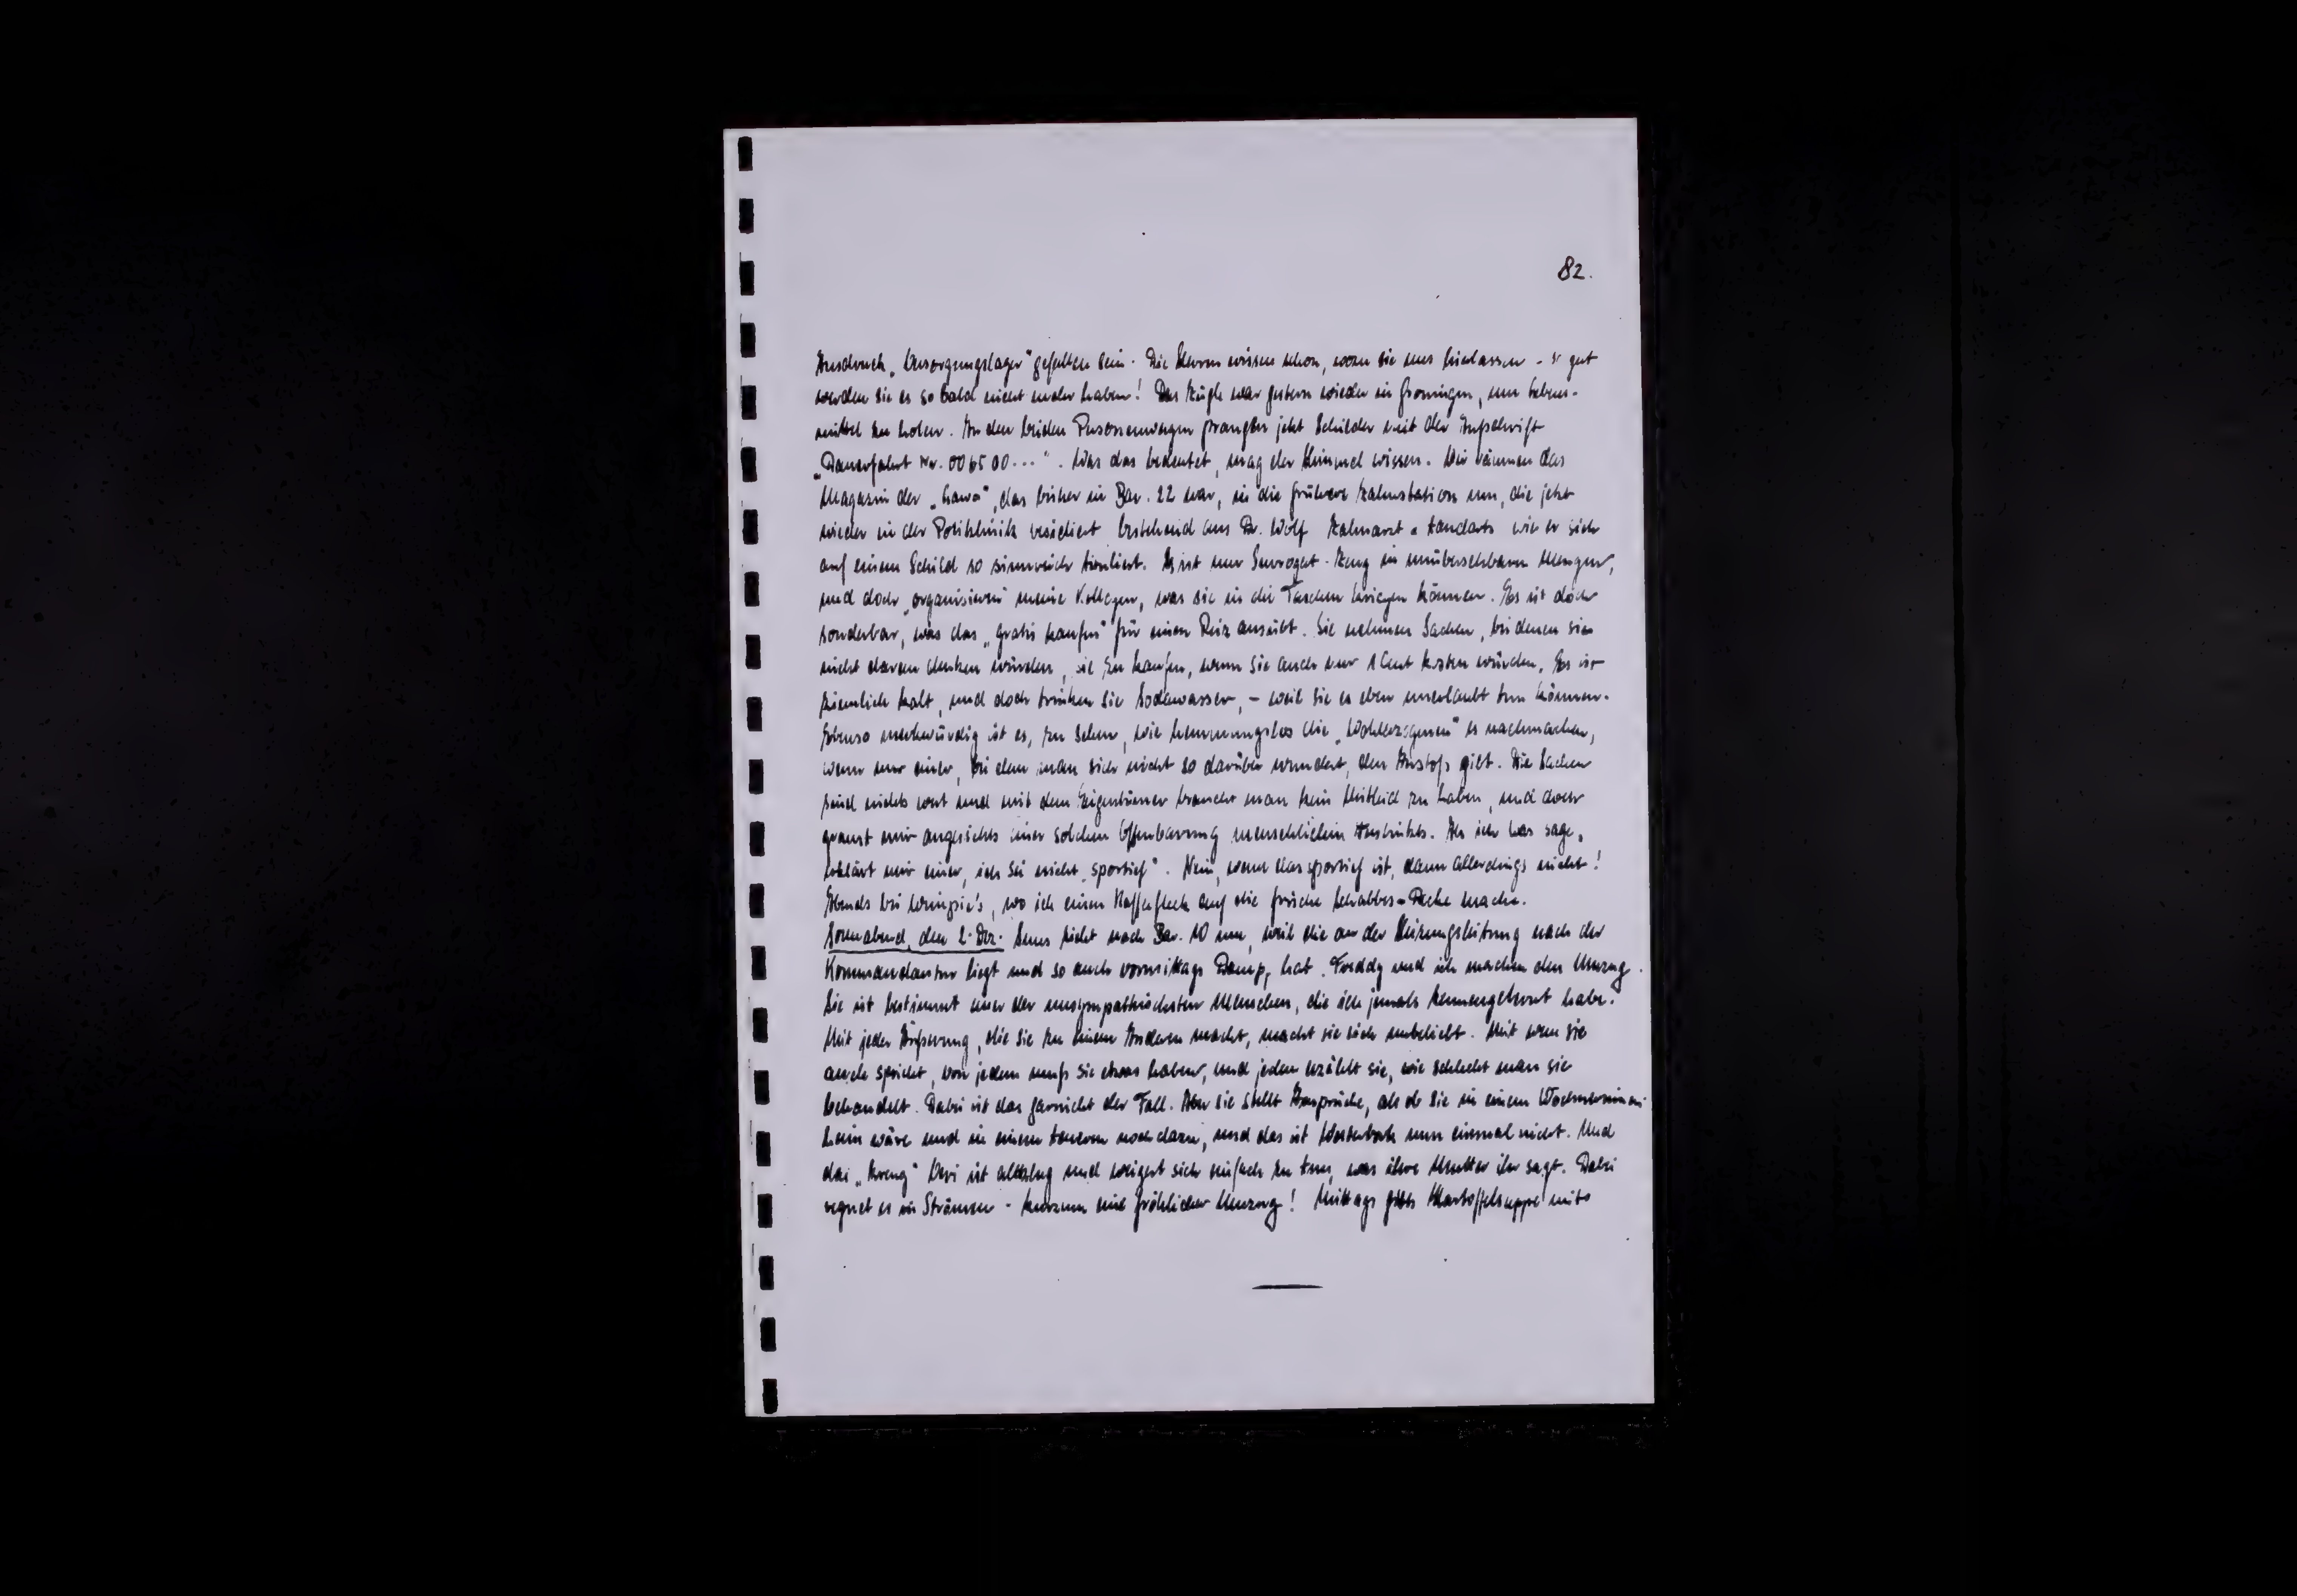 82.
Ausdruck „Versorgungslager" gefallen sein. Die Herren wissen schon, wozu sie uns hierlassen - so gut
werden sie es so bald nicht mehr haben! Das Zügle war gestern wieder in Groningen, um Lebens-
mittel zu holen. An den beiden Personenwagen prangen jetzt Schilder mit der Aufschrift
„Dauerfahrt Nr. 006500...". Was das bedeutet, mag der Himmel wissen. Wir räumen das
Magazin der „Lawa", das bisher in Bar. 22 war, in die frühere Zahnstation um, die jetzt
wieder in der Poliklinik residiert bestehend aus Dr. Wolf Zahnarzt - tandarts wie er sich
auf einem Schild so sinnreich tituliert. Es ist nur Surrogat-Zeug in unübersehbaren Mengen,
und doch „organisieren" meine Kollegen, was sie in die Taschen kriegen können. Es ist doch
sonderbar, was das „gratis kaufen" für einen Reiz ausübt. Sie nehmen Sachen, bei denen sie
nicht daran denken würden, sie zu kaufen, wenn sie auch nur 1 Cent kosten würden. Es ist
ziemlich kalt, und doch trinken sie Sodawasser, - weil sie es eben unerlaubt tun können.
Ebenso merkwürdig ist es, zu sehen, wie hemmungslos die „Wohlerzogenen" es nachmachen,
wenn nur einer, bei dem man sich nicht so darüber wundert, den Anstoß gibt. Die Sachen
sind nichts wert und mit dem Eigentümer braucht man kein Mitleid zu haben, und doch
graust mir angesichts einer solchen Offenbarung menschlichen Instinkts. Als ich was sage,
erklärt mir einer, ich sei nicht „sportief". Nein, wenn das sportief ist, dann allerdings nicht!
Abends bei, wo ich einen Kaffefleck auf die frische Schabbes-Decke mache.
Sonnabend, den 2. Dez. zieht nach Bar. 10 um, weil die an der Heizungsleitung nach der
Kommandantur liegt und so auch vormittags Dampf hat. Freddy und ich machen den Umzug.
Sie ist bestimmt einer der unsympathischsten Menschen, die ich jemals kennengelernt habe.
Mit jeder Äußerung, die sie zu einem Anderen macht, macht sie sich unbeliebt. Mit wem sie
auch spricht, von jedem muß sie etwas haben, und jedem erzählt sie, wie schlecht man sie
behandelt. Dabei ist das garnicht der Fall. Aber sie stellt Ansprüche, als ob sie in einem Wöchnerinnen-
heim wäre und in einem teueren noch dazu, und das ist Westerbork nun einmal nicht. Und
das „Kreng" ist altklug und weigert sich einfach zu tun, was ihre Mutter ihr sagt. Dabei
regnet es in Strömen - kurzum ein fröhlicher Umzug! Mittags gibts Kartoffelsuppe mit